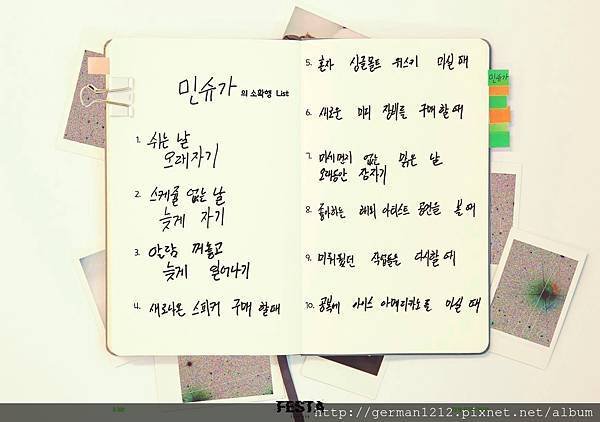 민슈가의 소확행 List
1. 쉬는 날
오래자기
2. 스케쥴 없는 날
늦게 자기
3. 알람 꺼놓고
늦게 일어나기
4. 새로나온 스피커 구매 할때
5. 혼자 싱글몰트 위스키 마실 때
6. 새로운 미디 장비를 구매 할 때
7. 미세먼지 없는 맑은 날
오래동안 잠자기
8. 좋아하는 해외 아티스트 공연을 볼 때
9. 미뤄뒀던 작업들을 다시할 때
10. 공복에 아이스 아메리카노를 마실 때
민슈가
FESTA
http://german1212.pixnet.net/album